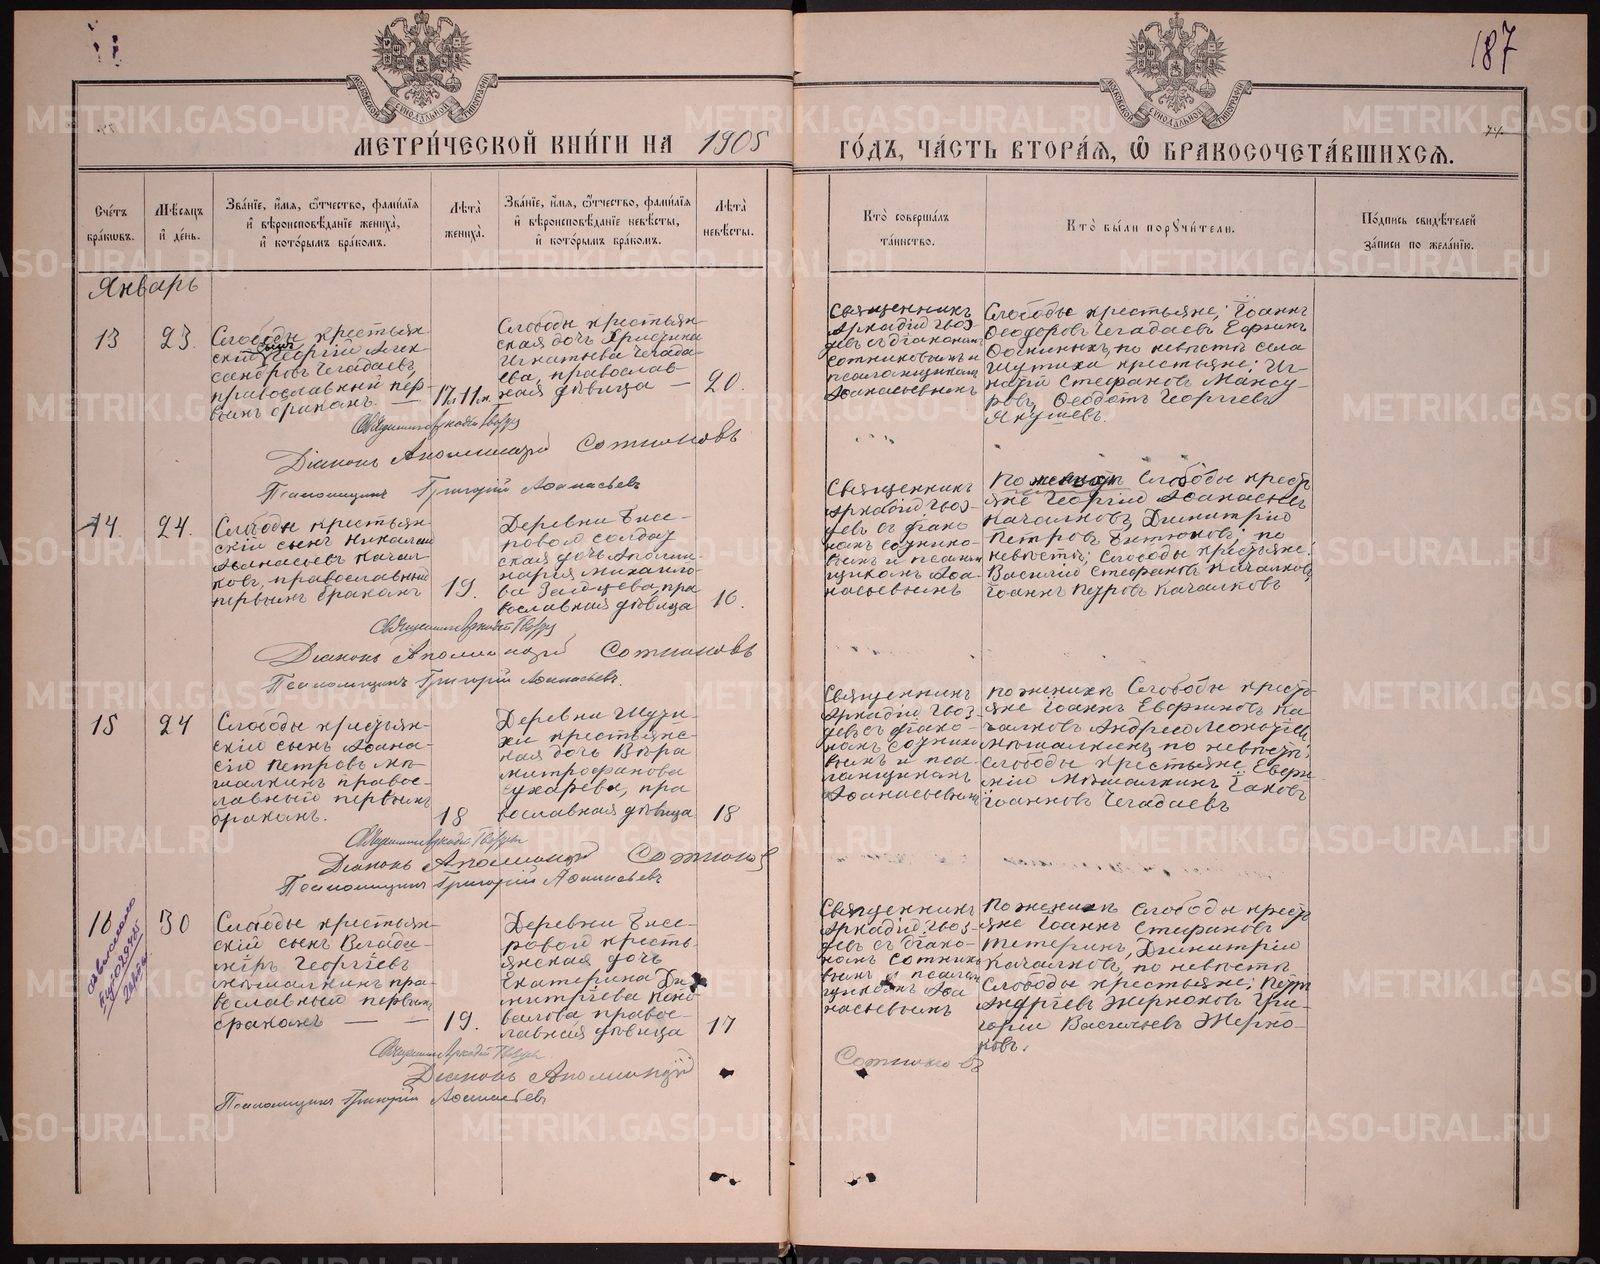 187
МЕТРИ́ЧЕСКОЙ КНИ́ГИ НА 1905 ГО́ДЪ, ЧА́СТЬ ВТОРА́Я, Ѿ БРАКОСОЧЕТА́ВШИХСЯ.
Сче́тъ бра́кѡвъ.
Мѣ́сѧцъ и҆ де́нь.
Зва́нїе, и҆́мѧ, ѻ҆́тчество, фами́лїѧ
и҆ вѣроисповѣ́данїе жениха̀,
и҆ кото́рымъ бра́комъ.
Лѣта̀ жениха̀.
Зва́нїе, и҆́мѧ, ѻ҆́тчество, фами́лїѧ
и҆ вѣроисповѣ́данїе невѣ́сты,
и҆ кото́рымъ бра́комъ.
Лѣта̀ невѣ́сты.
Кто̀ соверша́лъ та́инство.
Кто̀ бы́ли порꙋчи́тели.
По́дпись свидѣ́телей
за́писи по жела́нїю.
Январь
13
23
Слободы крестьян-
скій сынъ Георгій Алек-
сандровъ Чегадаевъ,
православный пер-
вымъ бракомъ. —
17 л 11 м.
Слободы крестьян-
ская дочь Христина
Игнатьева Чегада-
ева, православ-
ная дѣвица —
20.
Священникъ
Аркадій Гвоз-
девъ съ діакономъ
Сотниковымъ и
псаломщикомъ
Аѳанасьевымъ
Слободы крестьяне; Іоаннъ
Ѳеодоровъ Чегадаевъ Ефимъ
по невѣстѣ села
Шутиха крестьяне; Иг-
натій Стефановъ Мансу-
ровъ, Ѳеодотъ Георгіевъ
Якушевъ.
Священникъ Аркадій Гвоздевъ
Діаконъ Аполлинарій Сотниковъ
Псаломщикъ Григорій Аѳанасьевъ
14.
24.
Слободы крестьян-
скій сынъ Николай
Аѳанасьевъ Качал-
ковъ, православный
первымъ бракомъ
19.
Деревни Бисе-
ровой солдат
ская дочь Аполли-
нарія Михайло-
ва пра
вославная дѣвица
16.
Священникъ
Аркадій Гвоз-
девъ съ діако
номъ Сотнико-
вымъ и псалом
щикомъ Аѳа-
насьевымъ
По женихѣ Слободы крест
яне Георгій Аѳанасьевъ
Качалковъ, Димитрій
Петровъ по
невѣстѣ; Слободы крестьяне:
Василій Стефановъ Качалковъ,
Іоаннъ Петровъ Качалковъ
Священникъ Аркадій Гвоздевъ
Діаконъ Аполлинарій Сотниковъ
Псаломщикъ Григорій Аѳанасьевъ.
15
24
Слободы крестьян-
скій сынъ Аѳана-
сій Петровъ Мы-
шалкинъ правос-
лавный первымъ
бракомъ.
18
Деревни Шути-
хи крестьянс-
кая дочь Вѣра
Митрофанова
Сухарева, пра
вославная дѣвица
18
Священникъ
Аркадій Гвоз-
девъ съ діако-
номъ Сотнико
вымъ и пса-
ломщикомъ
Аѳанасьевымъ
по женихѣ Слободы крест-
яне Іоаннъ Евфимовъ Ка-
чалковъ Андрей Леонтіевъ
Мышалкинъ, по невѣстѣ:
Слободы крестьяне Евфи
мій Мышалкинъ Іаковъ
Іоанновъ Чегадаевъ
Священникъ Аркадій Гвоздевъ
Діаконъ Аполлинарій Сотниковъ
Псаломщикъ Григорій Аѳанасьевъ
16
30
Слободы крестьян-
скій сынъ Влади-
міръ Георгіевъ
Мышалкинъ пра-
вославный первымъ
бракомъ — —
19.
Деревни Бисе-
ровой кресть-
янская дочь
Екатерина Ди
митріева Коно
валова правос-
лавная дѣвица
17
Священникъ
Аркадій Гвоз-
девъ съ діако-
номъ Сотник
вымъ и псалом
щикомъ Аѳа
насьевымъ
По женихѣ Слободы крест
яне Іоаннъ Стефановъ
Тетеринъ, Димитрій
Качалковъ, по невѣстѣ
Слободы крестьяне; Петр
Андріевъ Жерноковъ Гри-
горій Васильевъ Жерно-
ковъ.
Священникъ Аркадій Гвоздевъ.
Діаконъ Аполлинарій Сотниковъ
Псаломщикъ Григорій Аѳанасьевъ
METRIKI.GASO-URAL.RU